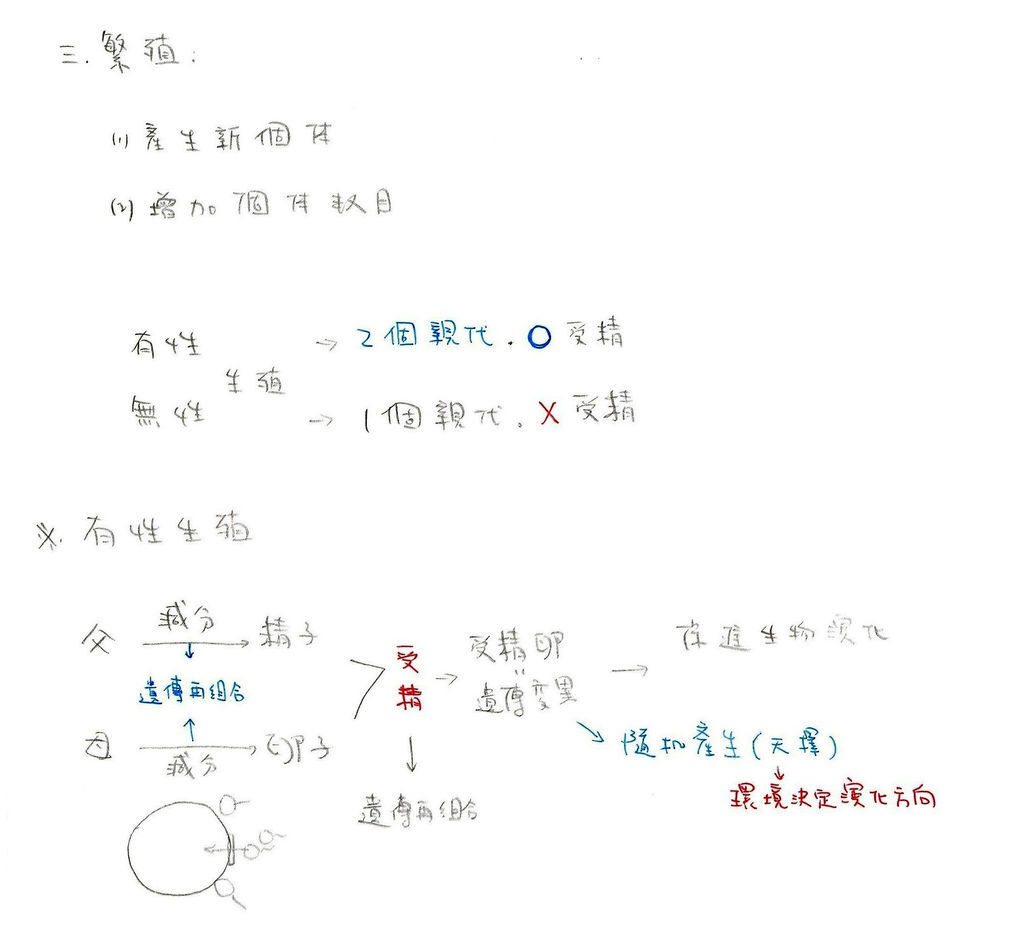 三. 繁殖:
(1) 產生新個体
(2) 增加個体数目
有性 → 2個親代. O 受精
生殖
無性 → 1個親代. X 受精
※. 有性生殖
父 減分 → 精子
遺傳再組合
母 減分 → 卵子
受精 → 受精卵 = 遺傳變異 → 促進生物演化
↓ 遺傳再組合
↘ 隨机產生(天擇)
↓ 環境決定演化方向